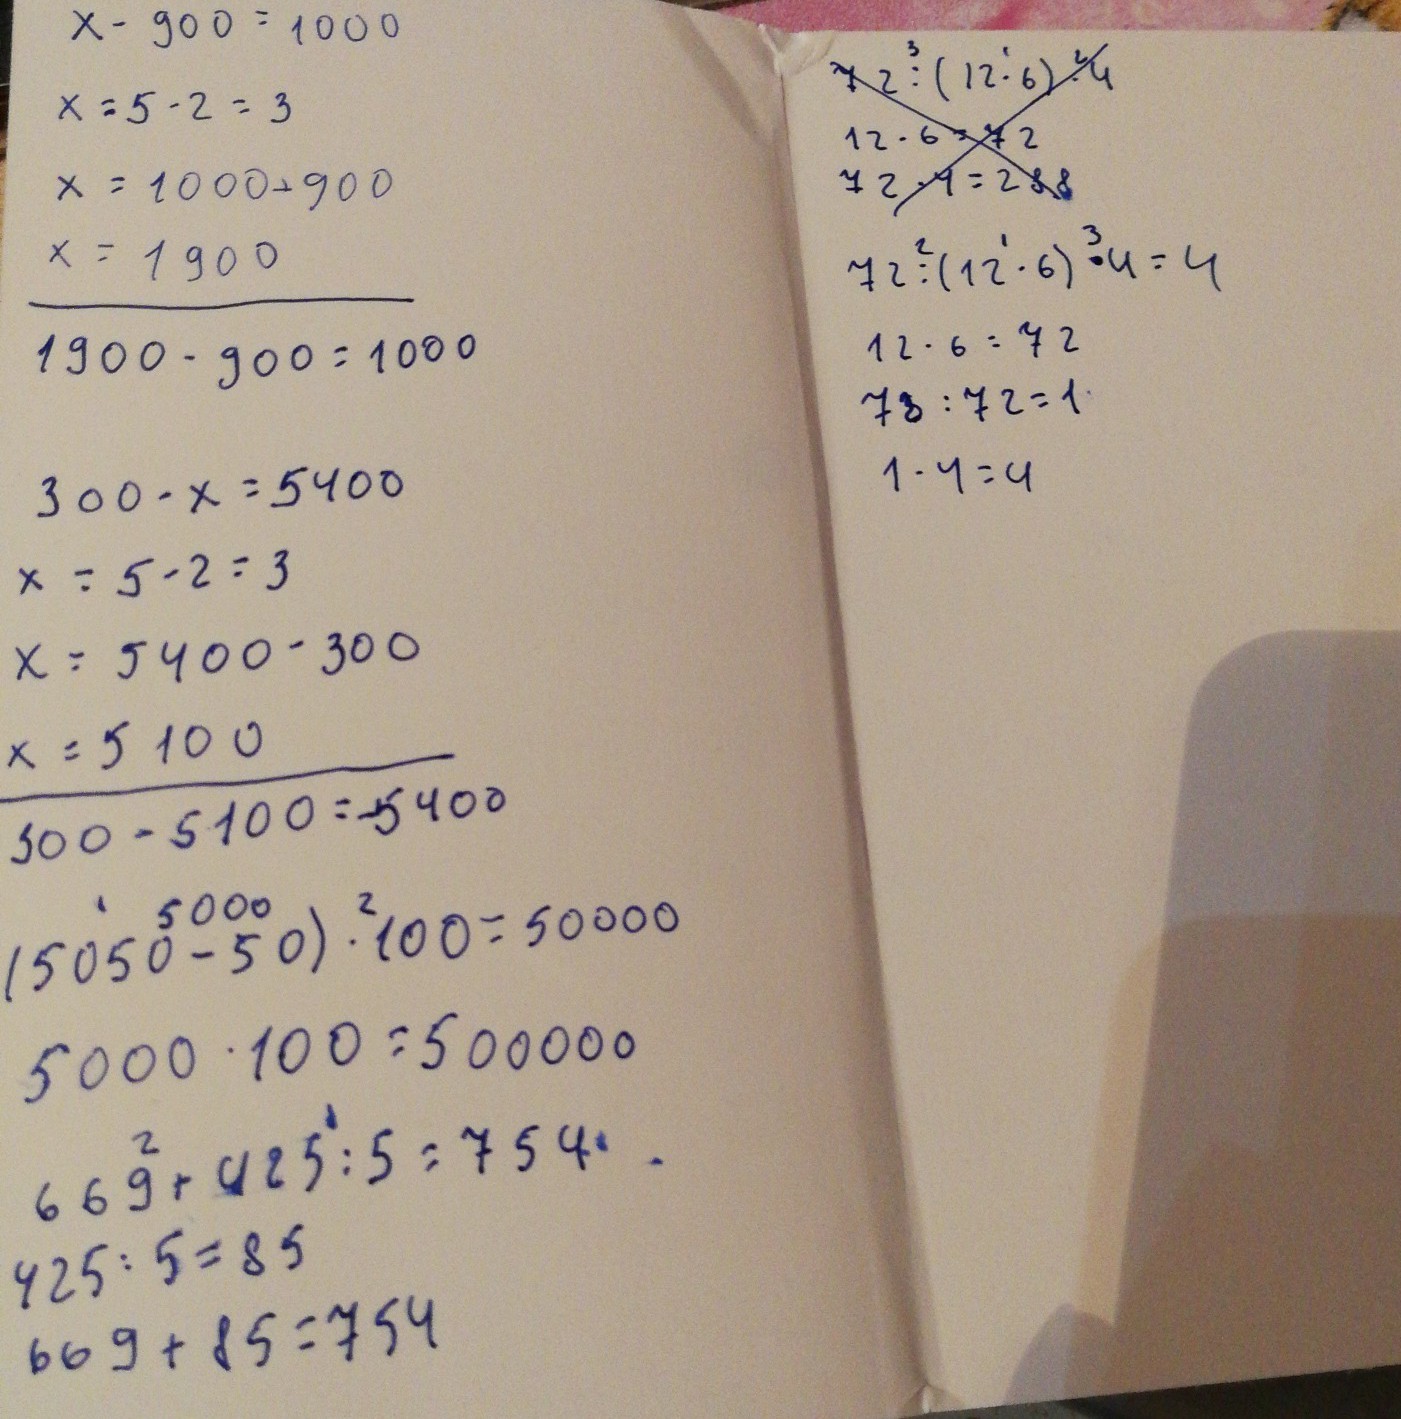 x - 900 = 1000
x = 5 - 2 = 3
x = 1000 + 900
x = 1900
1900 - 900 = 1000
300 - x = 5400
x = 5 - 2 = 3
x = 5400 - 300
x = 5100
300 - 5100 = -5400
1 5000 2
(5050 - 50) · 100 = 50000
5000 · 100 = 500000
2 1
669 + 425 : 5 = 754
425 : 5 = 85
669 + 85 = 754
3 1 2
72 : (12 · 6) · 4
12 · 6 = 72
72 · 4 = 288
2 1 3
72 : (12 · 6) · 4 = 4
12 · 6 = 72
72 : 72 = 1
1 · 4 = 4